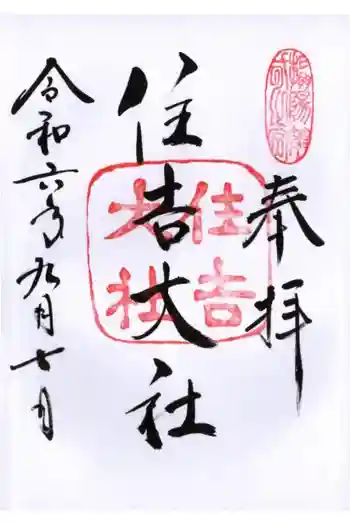 奉拝
住吉大社
住吉大社
令和六年九月七日